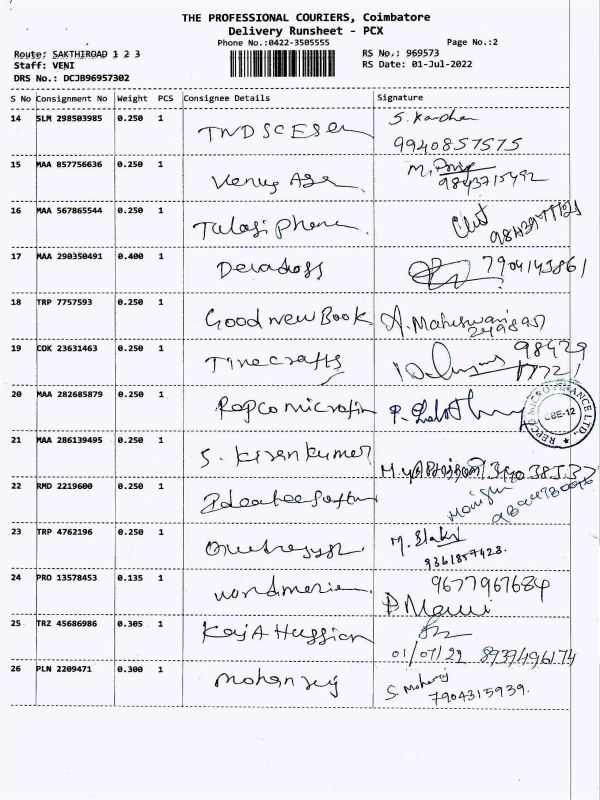 THE PROFESSIONAL COURIERS, Coimbatore
Delivery Runsheet - PCX
Phone No.:0422-3505555 Page No.:2
Route: SAKTHIROAD 1 2 3 RS No.: 969573
Staff: VENI RS Date: 01-Jul-2022
DRS No.: DCJB96957302
S No Consignment No Weight PCS Consignee Details Signature
14 SLM 298503985 0.250 1 S.
9940857575
15 MAA 857756636 0.250 1 Venus M.
9843715492
16 MAA 567865544 0.250 1 Tulasi Phone
17 MAA 290350491 0.400 1 Devadoss 7904143861
18 TRP 7757593 0.250 1 Good new Book A. Maheswari
19 COK 23631463 0.250 1 Timecrafts 98429
17721
20 MAA 282685879 0.250 1 Repco microfin P.
REPCO MICRO FINANCE LTD. CBE-12
21 MAA 286139495 0.250 1 S. Kiran kumar
22 RMD 2219600 0.250 1
23 TRP 4762196 0.250 1 M.
9361857423.
24 PRO 13578453 0.135 1 9677967684
25 TRZ 45686986 0.305 1 Kaja Hussian
01/07/22 8939496174
26 PLN 2209471 0.300 1 mohan S. Mohan
7904315939.